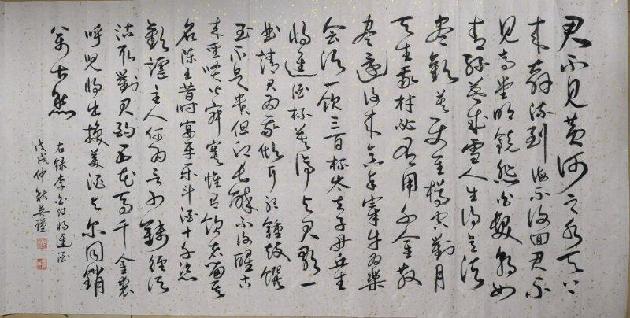 君不見黃河之水天上
來奔流到海不復回君不
見高堂明鏡悲白髮朝如
青絲暮成雪人生得意須
盡歡莫使金樽空對月
天生我材必有用千金散
盡還復來烹羊宰牛且為樂
會須一飲三百杯岑夫子丹丘生
將進酒杯莫停與君歌一
曲請君為我傾耳聽鐘鼓饌
玉不足貴但願長醉不復醒古
來聖賢皆寂寞惟有飲者留其
名陳王昔時宴平樂斗酒十千恣
歡謔主人何為言少錢徑須
沽取對君酌五花馬千金裘
呼兒將出換美酒與爾同銷
萬古愁
右錄李白詩將進酒
戊戌仲秋